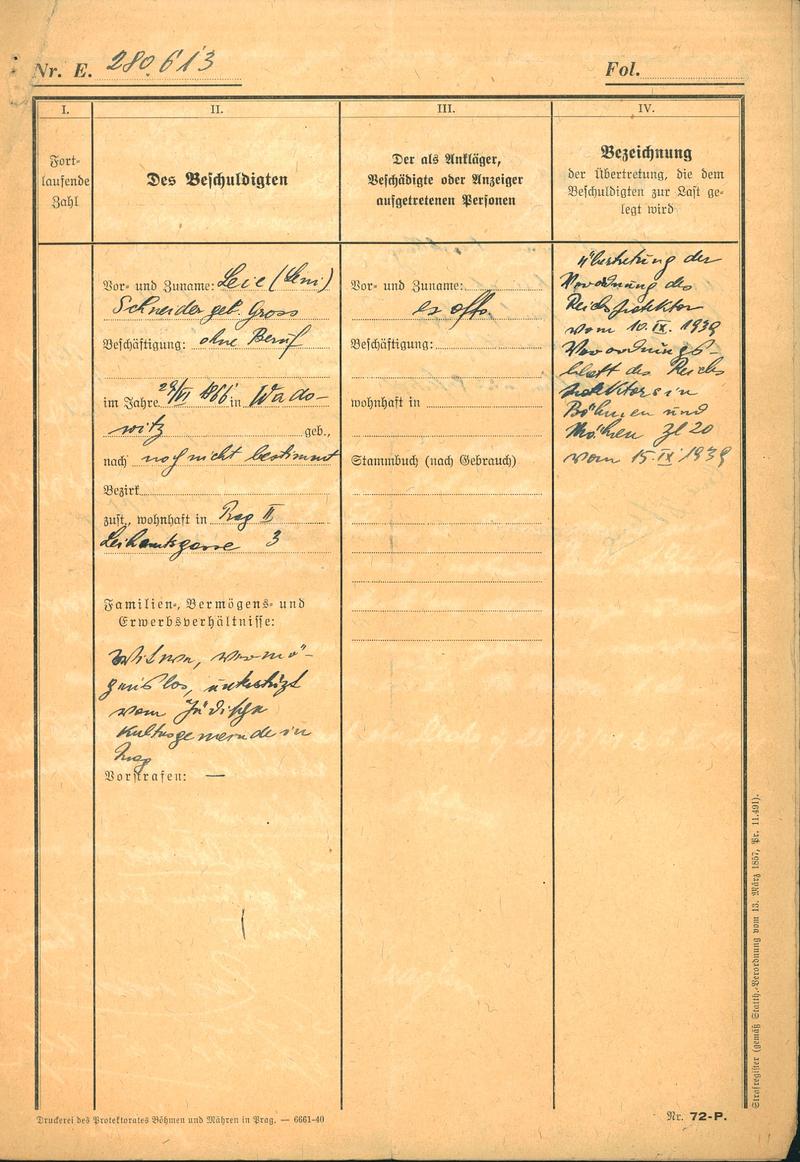 Nr. E. 280.613
Fol.
I.
II.
III.
IV.
Fort-
laufende
Zahl
Des Beschuldigten
Der als Ankläger,
Beschädigte oder Anzeiger
aufgetretenen Personen
Bezeichnung
der Übertretung, die dem
Beschuldigten zur Last ge-
legt wird
Vor- und Zuname: Leie (Leni)
Schneider geb. Gross
Beschäftigung: ohne Beruf
im Jahre 29/VI 1866 in Wado-
witz geb.,
nach noch nicht bestimmt
Bezirk
zust., wohnhaft in Prag II
Leihamtsgasse 3
Familien-, Vermögens- und
Erwerbsverhältnisse:
Witwe, vermö-
genslos, unterstüzt
vom Jüdische
Kultusgemeinde in
Prag
Vorstrafen: —
Vor- und Zuname:
ex offo.
Beschäftigung:
wohnhaft in
Stammbuch (nach Gebrauch)
Übertretung der
Verordnung des
Reichsprotektor
vom 10.IX.1939
Verordnungs-
blatt des Reichs
protektors in
Böhmen und
Mähren Zl 20
vom 15.IX 1939
Strafregister (gemäß Statth.-Verordnung vom 13. März 1857, Pr. 11.491).
Druckerei des Protektorates Böhmen und Mähren in Prag. — 6661-40
Nr. 72-P.